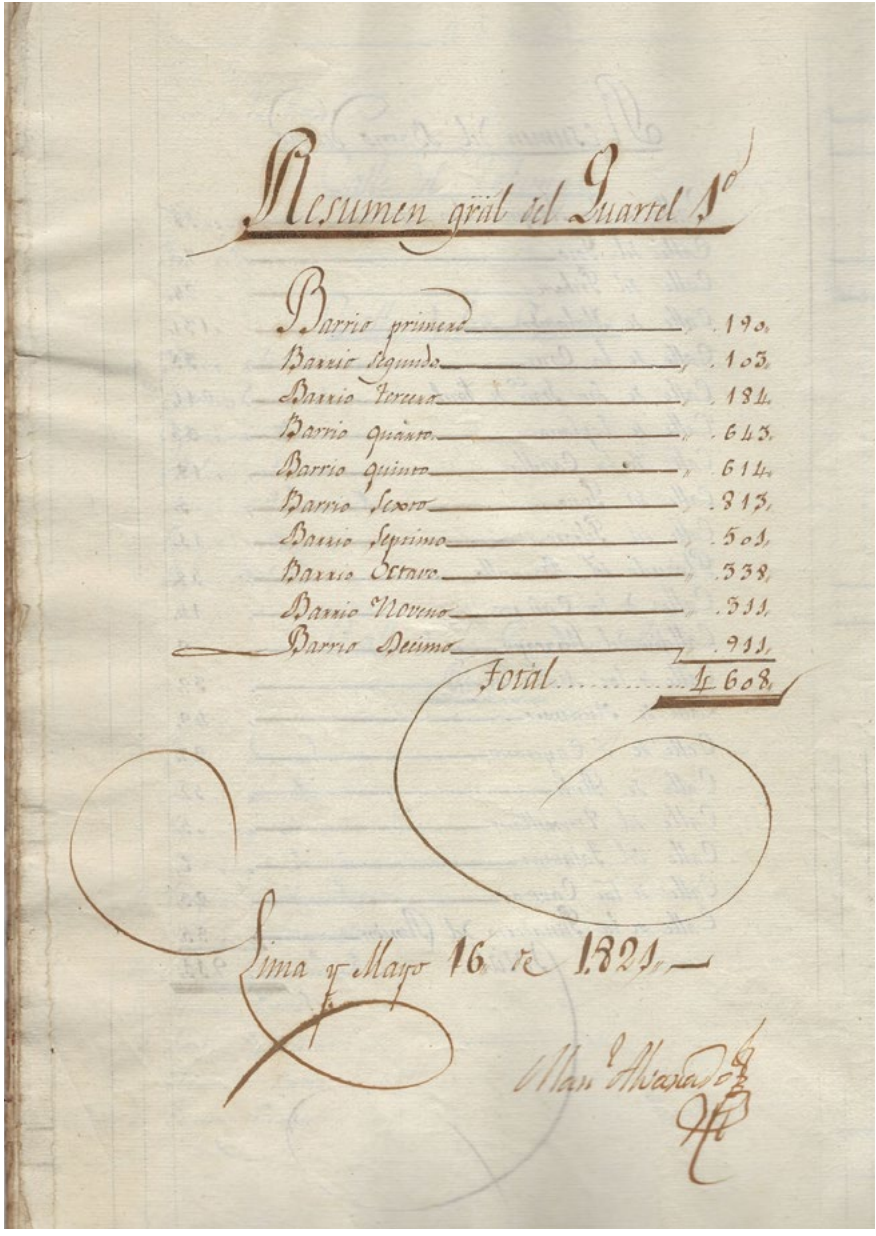 Resumen gräl del Quartel 1º
Barrio primero „ .190„
Barrio segundo „ .103„
Barrio tercero „ .184„
Barrio quarto „ .643„
Barrio quinto „ .614„
Barrio Sexto „ .813„
Barrio Septimo „ .501„
Barrio Octavo „ .338„
Barrio Noveno „ .311„
Barrio Decimo „ .911„
Total ............ 4 608„
Lima y Mayo 16 de 1821„
Manl Alvarado